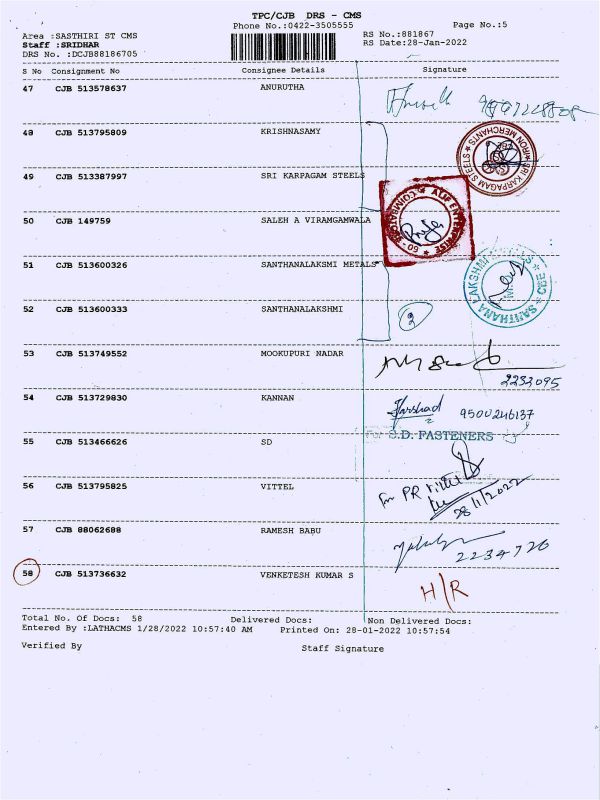 TPC/CJB DRS - CMS
Phone No.:0422-3505555
Page No.:5
Area :SASTHIRI ST CMS
RS No.:881867
Staff :SRIDHAR
RS Date:28-Jan-2022
DRS No. :DCJB88186705
S No Consignment No Consignee Details Signature
47 CJB 513578637 ANURUTHA
48 CJB 513795809 KRISHNASAMY
SRI KARPAGAM STEELS
IRON MERCHANTS
49 CJB 513387997 SRI KARPAGAM STEELS
ALIF ENTERPRISE
50 CJB 149759 SALEH A VIRAMGAMWALA
51 CJB 513600326 SANTHANALAKSMI METALS
SANTHANA LAKSHMI METALS
CBE
52 CJB 513600333 SANTHANALAKSHMI
2
53 CJB 513749552 MOOKUPURI NADAR
2232095
54 CJB 513729830 KANNAN
Harshad 9500246137
For S.D. FASTENERS
55 CJB 513466626 SD
56 CJB 513795825 VITTEL
For PR Vittel
28/1/2022
57 CJB 88062688 RAMESH BABU
2234720
58 CJB 513736632 VENKETESH KUMAR S
H/R
Total No. Of Docs: 58 Delivered Docs: Non Delivered Docs:
Entered By :LATHACMS 1/28/2022 10:57:40 AM Printed On: 28-01-2022 10:57:54
Verified By Staff Signature